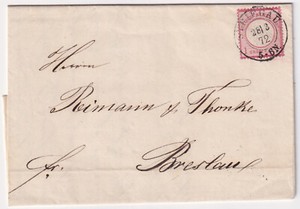 Herrn
Reimann & Thonke
fr.
Breslau
72